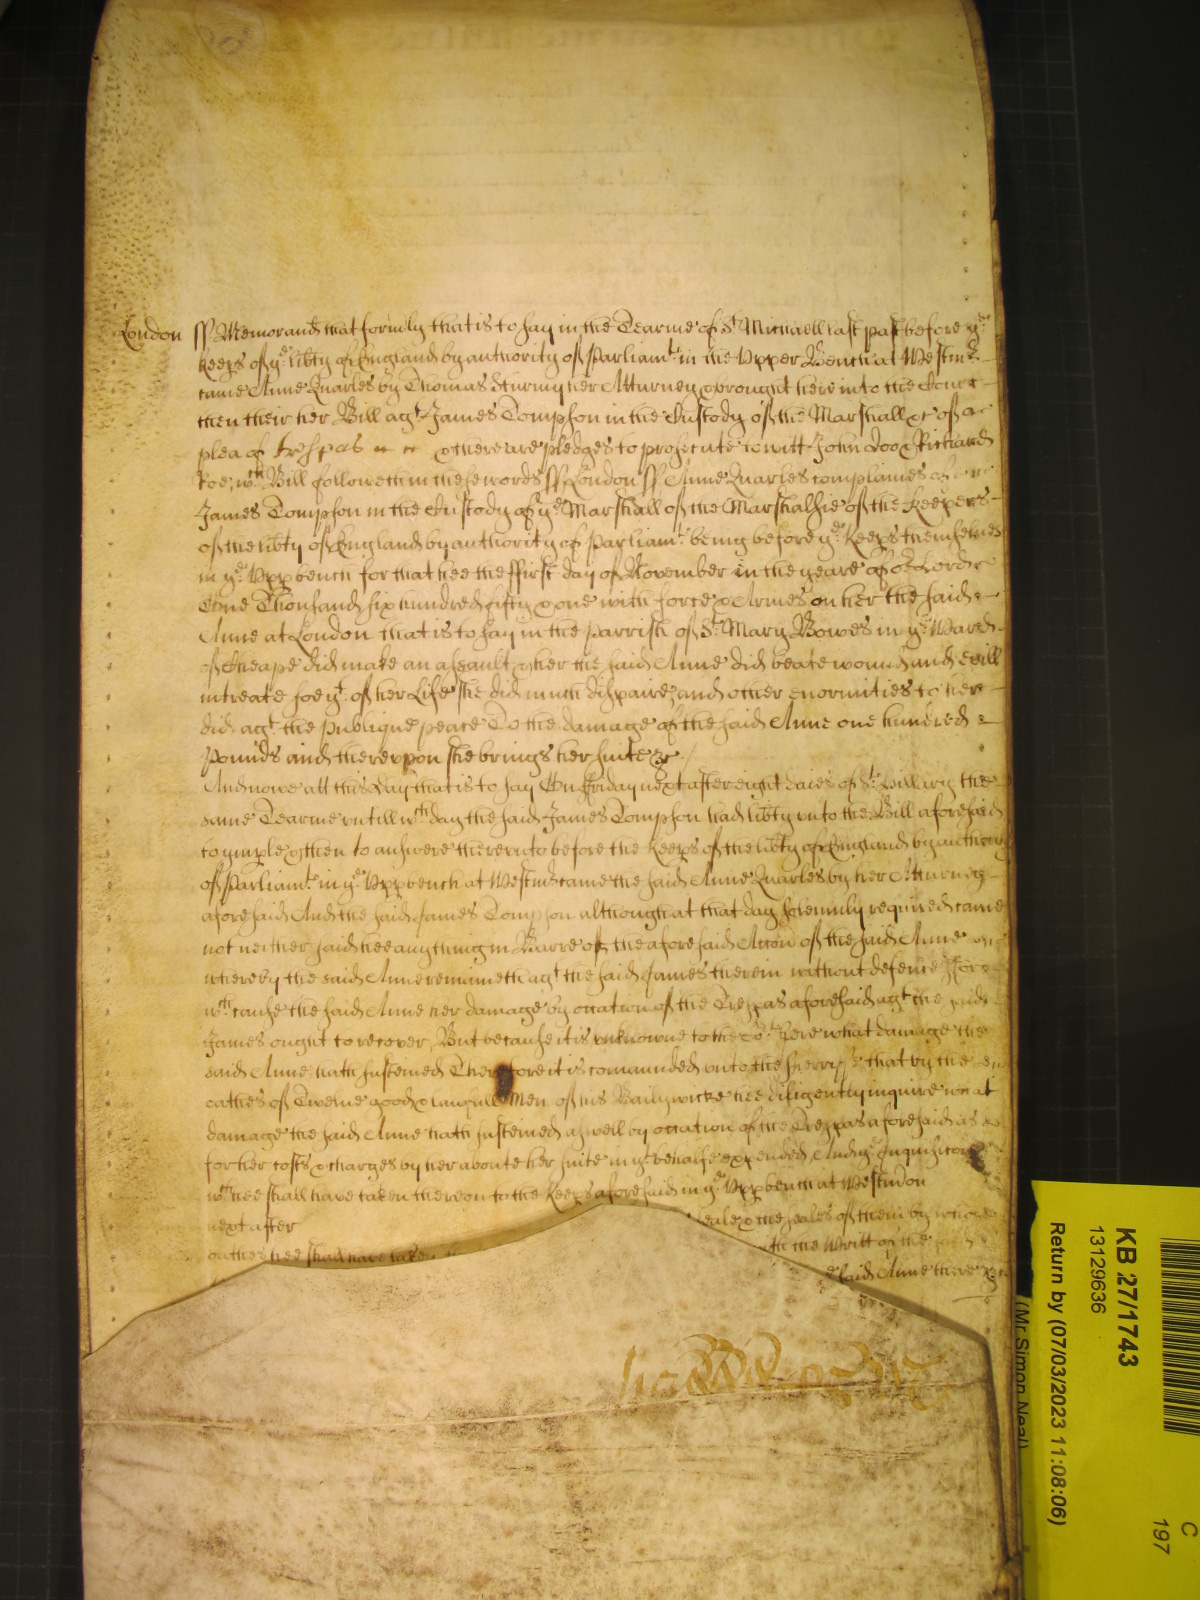 London ss Memorand that formly that is to say in the Tearme of St Michaell last past before ye
Keeps of ye libty of England by authority of Parliamt in the Vpper Bench at Westmr
came Anne Quarles by Thomas Sturmy her Atturney & brought here into the Court
then their her Bill agt James Tompson in the Custody of the Marshall &c of a
plea of trespas & there are pledges to prosecute to witt John Doo & Richard
Roe, wch Bill followeth in these words ss London ss Anne Quarles complaines of
James Tompson in the Custody of ye Marshall of the Marshalsie of the Keepers
of the libty of England by authority of Parliamt being before ye Keeps themselves
in ye Vpp bench for that hee the ffirst day of November in the yeare of or Lord
One Thousand six hundred fifty & one with force & Armes on her the said
Anne at London that is to say in the parrish of St Mary Bowes in ye Ward
of Cheape did make an assault & her the said Anne did beate wound and evill
intreate soe yt of her Life she did much dispaire, and other enormities to her
did agt the publique peace To the damage of the said Anne one hundred
pounds and therevpon she brings her suite &c
And nowe att this day that is to say On ffriday next after eight daies of St Hillary the
same Tearme vntill wch day the said James Tompson had libty vnto the Bill aforesaid
to imple & then to answere therevnto before the Keeps of the libty of England by authority
of Parliamt in ye Vpp bench at Westmr came the said Anne Quarles by her Atturney
aforesaid And the said James Tompson although at that day solemnly required came
not neither said hee any thing in Barre of the aforesaid Accon of the said Anne
whereby the said Anne remaineth agt the said James therein without defence ffor
wch cause the said Anne her damage by occation of the Trespas aforesaid agt the said
James ought to recover, But because it is vnknowne to the Cort here what damage the
said Anne hath susteined Therefore it is comanded vnto the Sherry that by the
oathes of Twelve good & lawfull Men of his Bailywicke hee diligently inquire what
damage the said Anne hath susteined aswell by occation of the Trespas aforesaid as
for her costs & charges by her aboute her suite in yt behalfe expended, And ye Inquisicon
wch hee shall have taken thereon to the Keeps aforesaid in ye Vpp bench at Westm on
next after
seale & the seales of them by whose
oathes hee shall have taken
the Writt of the
said Anne there &c
KB 27/1743
13129636
Return by (07/03/2023 11:08:06)
(Mr Simon Neal)
C
197